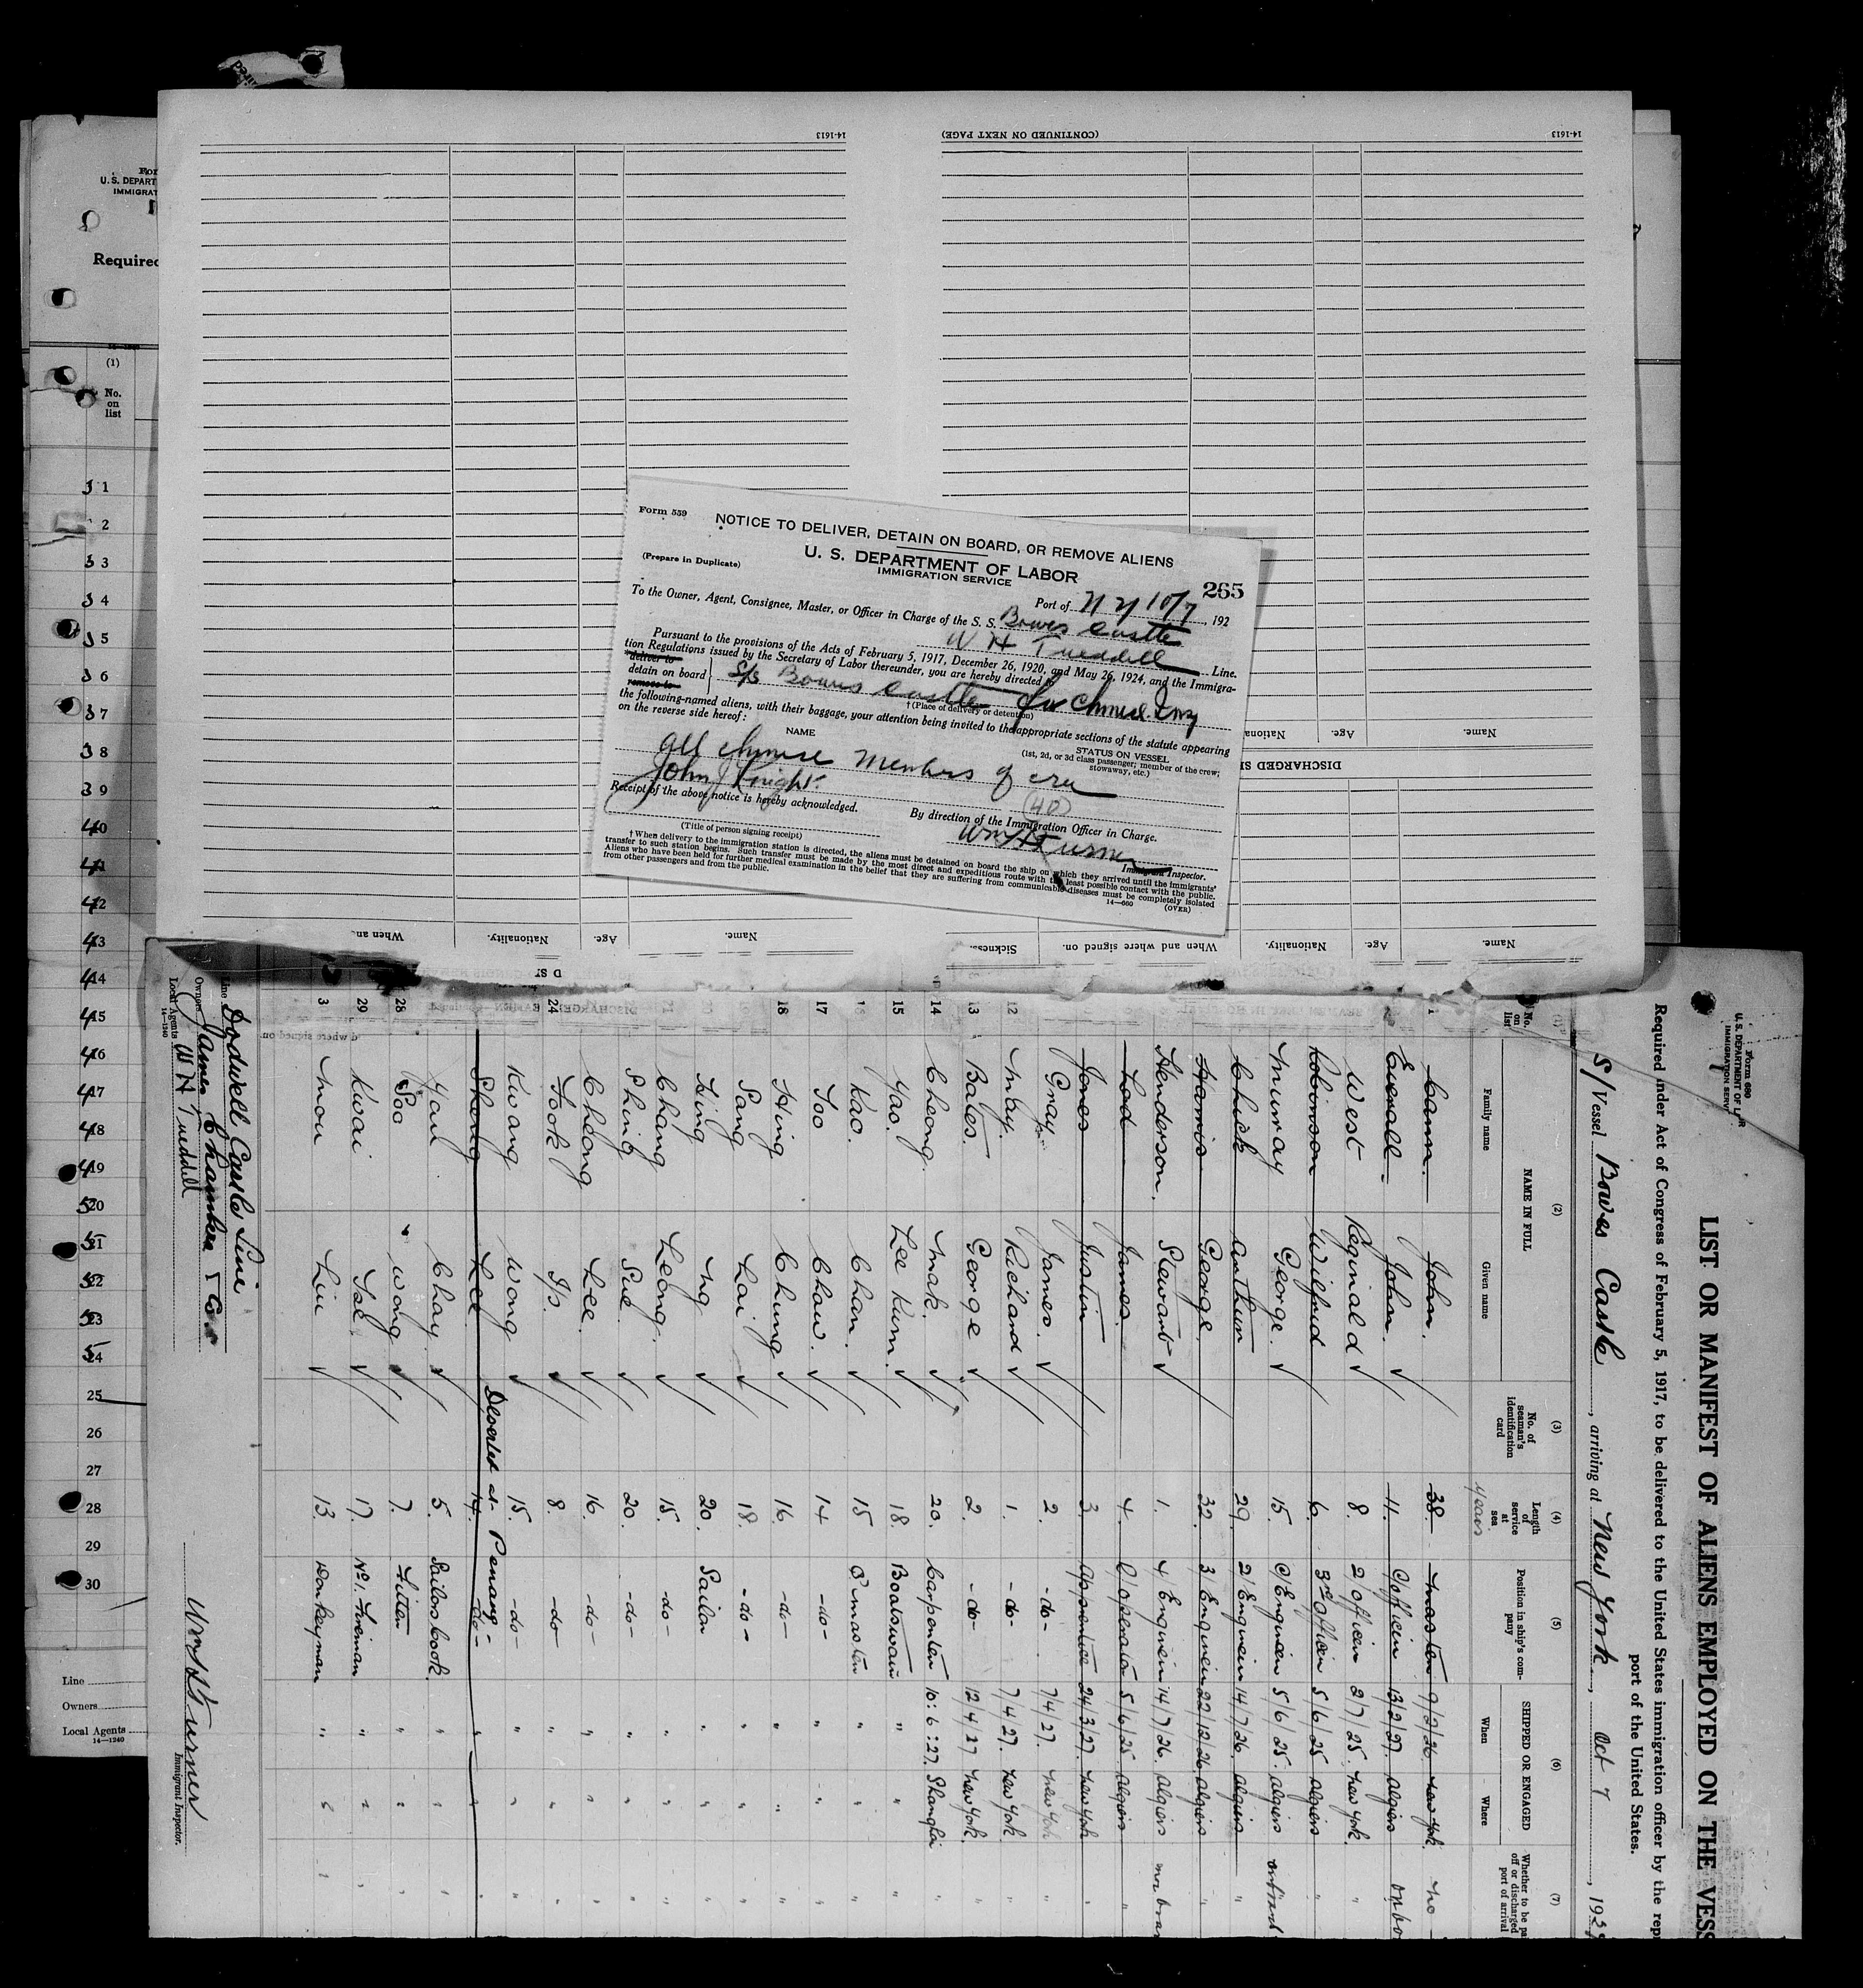 14-1613
(CONTINUED ON NEXT PAGE)
14-1613
U. S. DEPART
IMMIGRAT
Required
(1)
No.
on
list
Form 559
NOTICE TO DELIVER, DETAIN ON BOARD, OR REMOVE ALIENS
(Prepare in Duplicate)
U. S. DEPARTMENT OF LABOR
IMMIGRATION SERVICE
265
Port of N Y 10/7, 192
To the Owner, Agent, Consignee, Master, or Officer in Charge of the S. S. Bowes Castle
W H Tueddell Line.
Pursuant to the provisions of the Acts of February 5, 1917, December 26, 1920, and May 26, 1924, and the Immigra-
tion Regulations issued by the Secretary of Labor thereunder, you are hereby directed to
deliver to
detain on board
remove to
S/s Bowes Castle for Chinese Inq
† (Place of delivery or detention)
the following-named aliens, with their baggage, your attention being invited to the appropriate sections of the statute appearing
on the reverse side hereof:
NAME
STATUS ON VESSEL
(1st, 2d, or 3d class passenger; member of the crew;
stowaway, etc.)
All Chinese Members of crew
(40)
John J Knight
Receipt of the above notice is hereby acknowledged.
By direction of the Immigration Officer in Charge.
Wm H Turner
(Title of person signing receipt)
Immigrant Inspector.
† When delivery to the immigration station is directed, the aliens must be detained on board the ship on which they arrived until the immigrants'
transfer to such station begins. Such transfer must be made by the most direct and expeditious route with the least possible contact with the public.
Aliens who have been held for further medical examination in the belief that they are suffering from communicable diseases must be completely isolated
from other passengers and from the public.
14—660
(OVER)
Name.
Age.
DISCHARGED
Name.
Age.
Nationality.
When and where signed on.
Sickness.
Name.
Age.
Nationality.
When an
Form 680
U. S. DEPARTMENT OF LABOR
IMMIGRATION SERV
LIST OR MANIFEST OF ALIENS EMPLOYED ON THE VESS
Required under Act of Congress of February 5, 1917, to be delivered to the United States immigration officer by the repr
port of the United States.
S/Vessel Bowes Castle, arriving at New York, Oct 7, 1927
(1) (2) (3) (4) (5) (6) (7)
No. on list
NAME IN FULL
Family name
Given name
No. of seaman's identification card
Length of service at sea
years
Position in ship's company
SHIPPED OR ENGAGED
When
Where
Whether to be pa
off or discharged
port of arrival
Cann. John. 38. Master 9/2/26 New York. No
Everall John. 11. C/officer 13/2/27. Algiers
West Reginald 8. 2/officer 2/7/25. New York.
Robinson Wilfred 6. 3rd officer 5/6/25 Algiers
Murray George. 15. C/Engineer 5/6/25. Algiers
Chick Arthur 29. 2/Engineer 14/7/26. Algiers
Harris George. 32. 3/Engineer 22/12/26. Algiers
Henderson. Stewart 1. 4 Engineer 14/7/26. Algiers
Lod James. 4. O/operator 5/6/25. Algiers
Jones Justin 3. Apprentice 24/3/27. New York
Gray James. 2. -do- 7/4/27. New York
12 May. Richard 1. -do- 7/4/27. New York
13 Bates. George 2. -do- 12/4/27 New York.
14 Cheong. Mak. 20. Carpenter 10:6:27. Shanghai
15 Yao. Lee Kum. 18. Boatswain " "
Kao. Chan. 15 Q'master " "
17 Too Chaw. 14 -do- " "
18 Hing Chung 16 -do- " "
Sang Lai 18. -do- " "
Hing Ng 20. Sailor " "
Chang Leong. 15. -do- " "
Shing Sue 20. -do- " "
Cheong Lee. 16. -do- " "
24 Fook Ip. 8. -do- " "
Kwang Wong 15. -do- " "
Shong Lee Deserted at Penang 14. -do- " "
Yau Chay. 5. Sailors Cook. " "
28 Soo Wong 7. Fitter " "
29 Kwai Tse. 17. No 1. Fireman " "
3 Mou Liu 13. Donkeyman " "
Line Dodwell Castle Line
Owners James Chambers & Co
Local Agents W H Tueddell
14-1240
Wm H Turner
Immigrant Inspector.
31
32
33
34
35
36
37
38
39
40
41
42
43
44
45
46
47
48
49
50
51
52
53
54
25
26
27
28
29
30
Line
Owners
Local Agents
14—1240